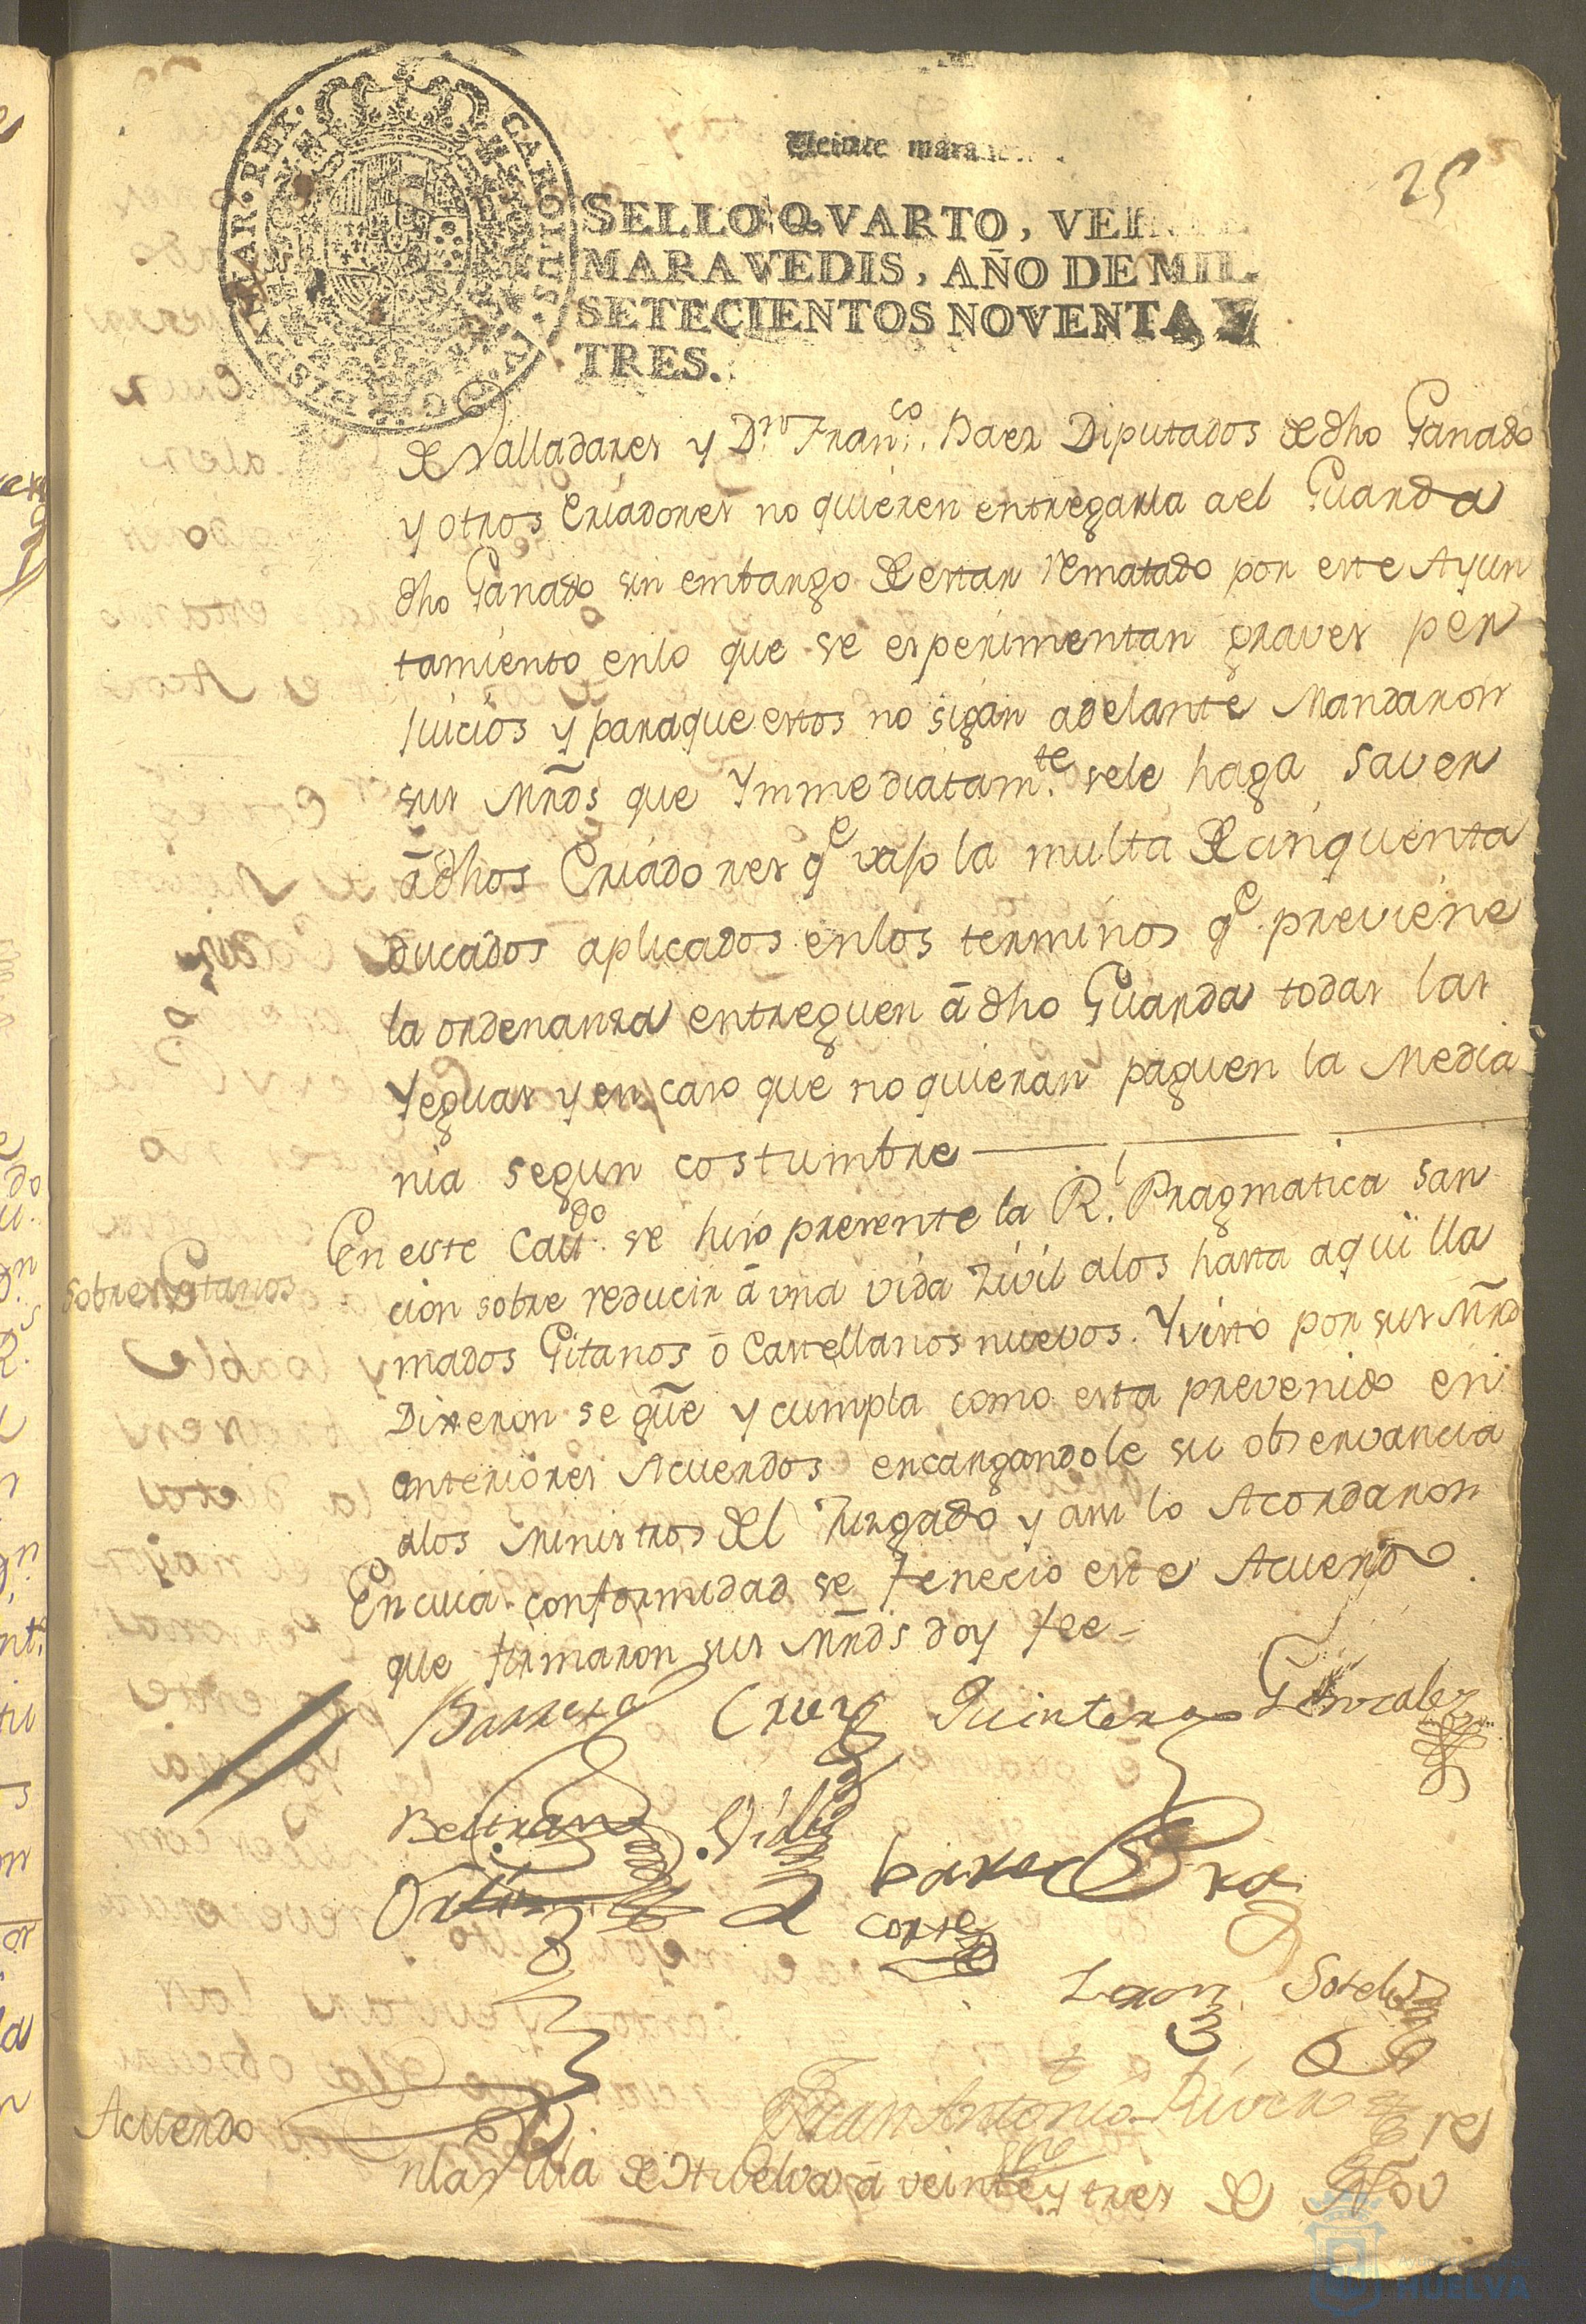 Veinte marave
25
CAROLUS
SELLO QVARTO, VEINTE
MARAVEDIS, AÑO DE MIL
SETECIENTOS NOVENTA, Y
TRES.
de Valladares y Dn Franco. Baez Diputados de dho Ganado
y otros Criadores no quieren entregarla a el Guarda
dho Ganado sin embargo de estar rematado por este Ayun
tamiento en lo que se esperimentan graves per
juicios y para que estos no sigan adelante Mandaron
sus Mrds que Ymmediatamte. sele haga Saver
â dhos Criadores qe vajo la multa de cinquenta
ducados aplicados enlos terminos qe. previene
la ordenanza entreguen â dho Guarda todas las
Yeguas y en caso que no quieran paguen la Media
nia segun costumbre
En este Cavdo. se hizo presente la Rl. Pragmatica San
Sobre Gitanos
cion sobre reducir â una vida Zivil alos hasta aqui lla
mados Gitanos ô Castellanos nuevos. Y visto por sus Mrds
Dixeron se gue y cumpla como esta prevenido en
anteriores Acuerdos encargandole su observancia
alos Ministros del Juzgado y asi lo Acordaron
En cuia conformidad se fenecio este Acuerdo
que firmaron sus Mrds doy fee
Barreto Cruz Quintero Gonzalez
Beltran Vides
Ortiz
Corte
Leon Sotelo
Juan Antonio Rivera
Acuerdo
nla Villa de Huelva â veinte y tres de Nov
HUELVA